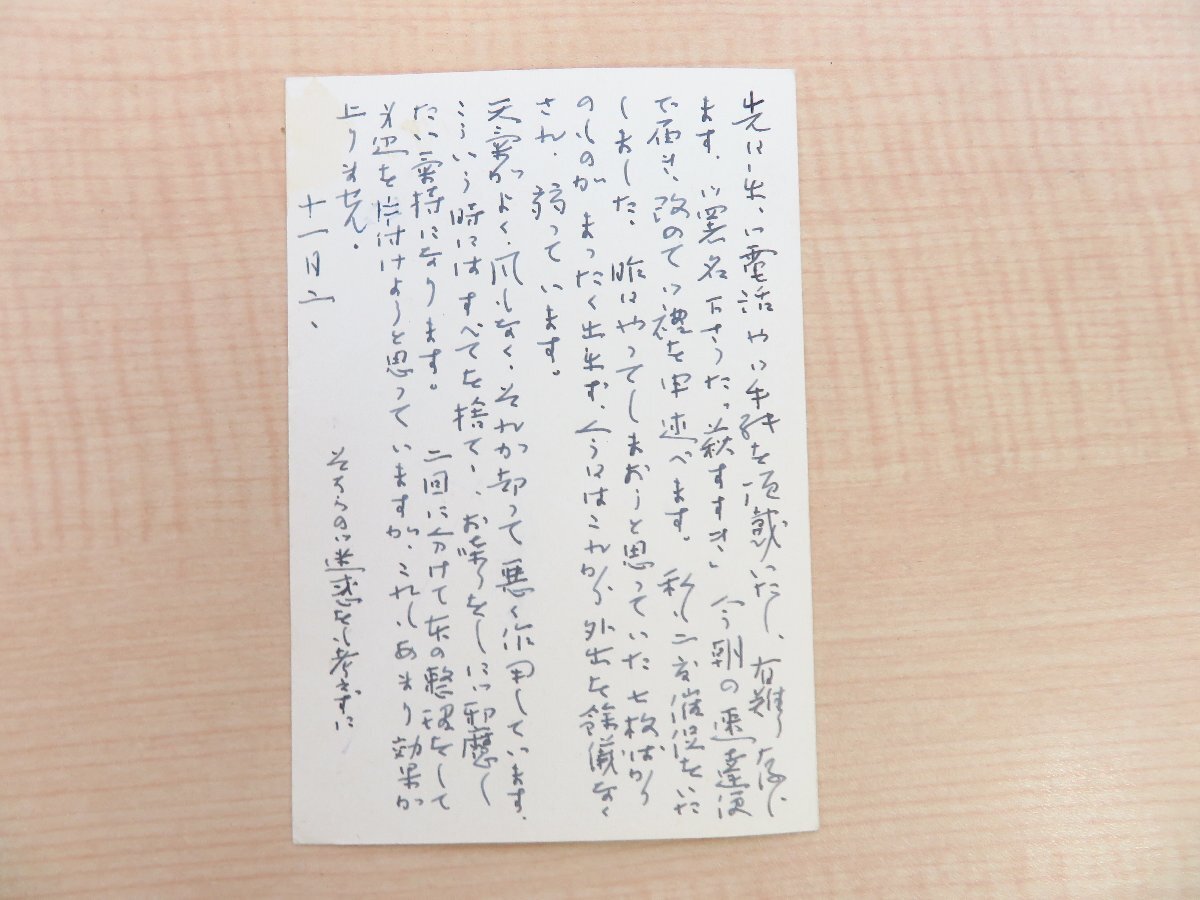 先日来、御電話や御手紙を頂戴いたし、有難う存じ
ます。御署名下さった「萩すすき」今朝の速達便
で届き、改めて御禮を申述べます。私も二度催促をいた
しました。昨日やってしまおうと思っていた七枚ばかり
のものがまったく出来ず、今日はこれから外出を餘儀なく
され、弱っています。
天氣がよく、風もなく、それが却って悪く作用しています。
こういう時にはすべてを捨て、お喋りをしに御邪魔し
たい氣持になります。二回に分けて車の整理をして
身辺を片付けようと思っていますが、これもあまり効果が
上りません。
十一月二日
そちらの御迷惑をも考えずに